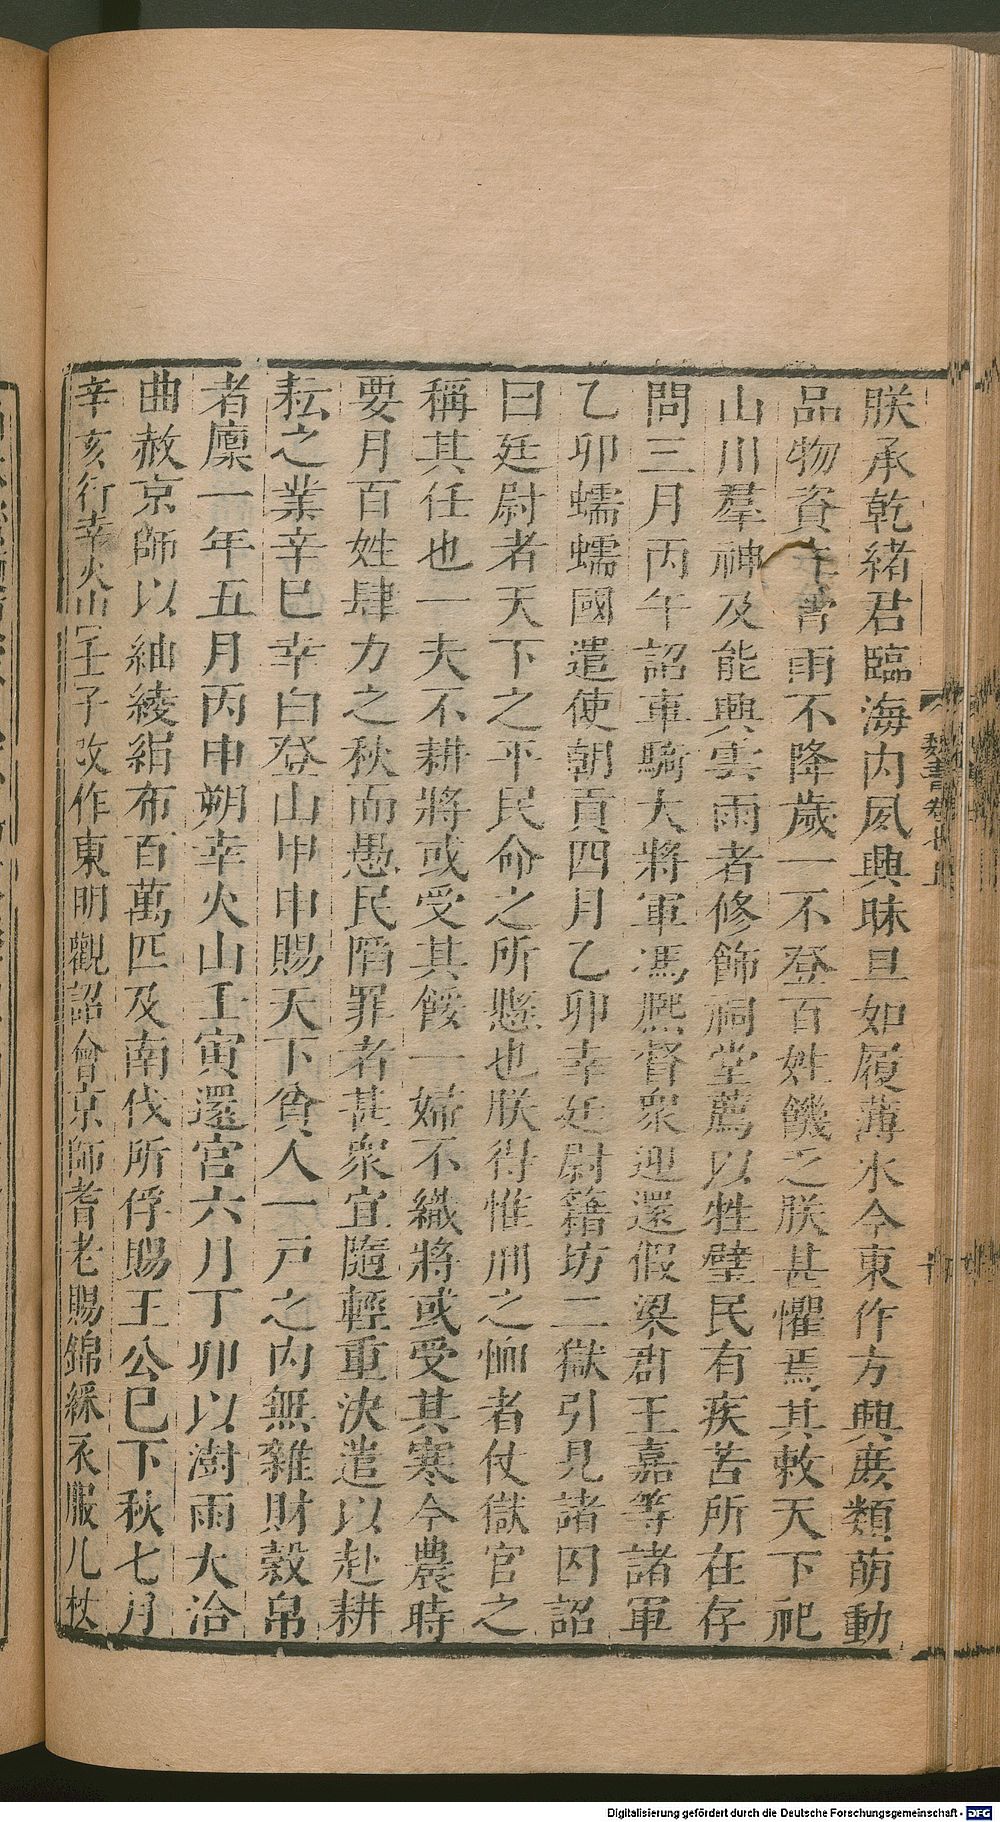 朕承乾緒君臨海內夙興昧旦如履薄冰今東作方興庶類萌動
品物資生膏雨不降歲一不登百姓饑乏朕甚懼焉其敕天下祀
山川羣神及能興雲雨者修飾祠堂薦以牲璧民有疾苦所在存
問三月丙午詔車騎大將軍馮熙督衆迎還假梁郡王嘉等諸軍
乙卯蠕蠕國遣使朝貢四月乙卯幸廷尉籍坊二獄引見諸囚詔
曰廷尉者天下之平民命之所懸也朕得惟刑之恤者仗獄官之
稱其任也一夫不耕將或受其餒一婦不織將或受其寒今農時
要月百姓肆力之秋而愚民陷罪者甚衆宜隨輕重決遣以赴耕
耘之業辛巳幸白登山甲申賜天下貧人一戶之內無雜財穀帛
者廩一年五月丙申朔幸火山壬寅還宮六月丁卯以澍雨大洽
曲赦京師以紬綾絹布百萬匹及南伐所俘賜王公已下秋七月
辛亥行幸火山壬子改作東明觀詔會京師耆老賜錦綵衣服几杖
魏書卷七上
Digitalisierung gefördert durch die Deutsche Forschungsgemeinschaft - DFG